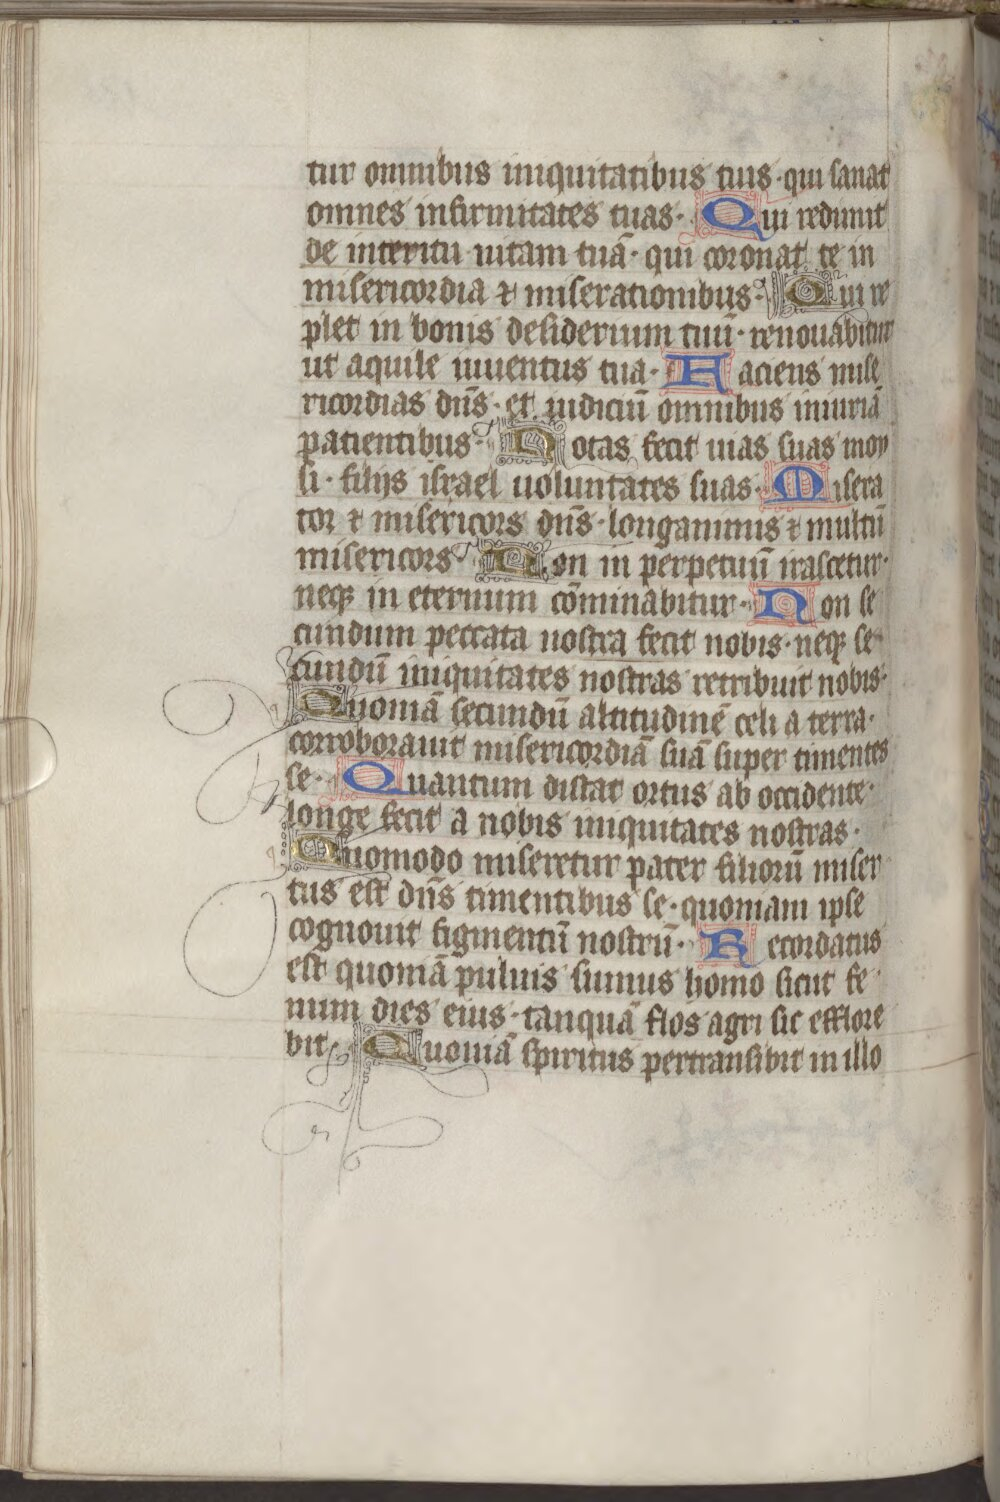 tur omnibus iniquitatibus tuis · qui sanat
omnes infirmitates tuas · Qui redimit
de interitu uitam tuā · qui coronat te in
misericordia ⁊ miserationibus · Qui re
plet in bonis desiderium tuū · renouabitur
ut aquile iuuentus tua · Faciens mise
ricordias dn̄s · et iudiciū omnibus iniuriā
patientibus · Notas fecit uias suas moy
si · filijs israel uoluntates suas · Misera
tor ⁊ misericors dn̄s · longanimis ⁊ multū
misericors · Non in perpetuū irascetur ·
neqȝ in eternum cōminabitur · Non se
cundum peccata nostra fecit nobis · neqȝ se
cundū iniquitates nostras retribuit nobis ·
Quoniā secundū altitudinē celi a terra ·
corroborauit misericordiā suā super timentes
se · Quantum distat ortus ab occidente ·
longe fecit a nobis iniquitates nostras ·
Quomodo miseretur pater filiorū miser
tus est dn̄s timentibus se · quoniam ipse
cognouit figmentū nostrū · Recordatus
est quoniā puluis sumus homo sicut fe
num dies eius · tanquā flos agri sic efflore
bit · Quoniā spiritus pertransibit in illo